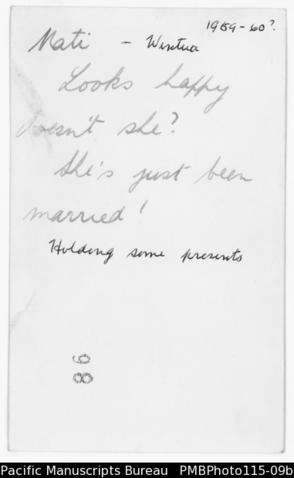 1959-60?
Mati - Wintua
Looks happy
doesn't she?
She's just been
married!
Holding some presents
86
Pacific Manuscripts Bureau PMBPhoto115-09b